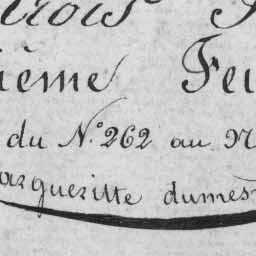 trois
ième Feu
du N.° 262 au N
argueritte dumes